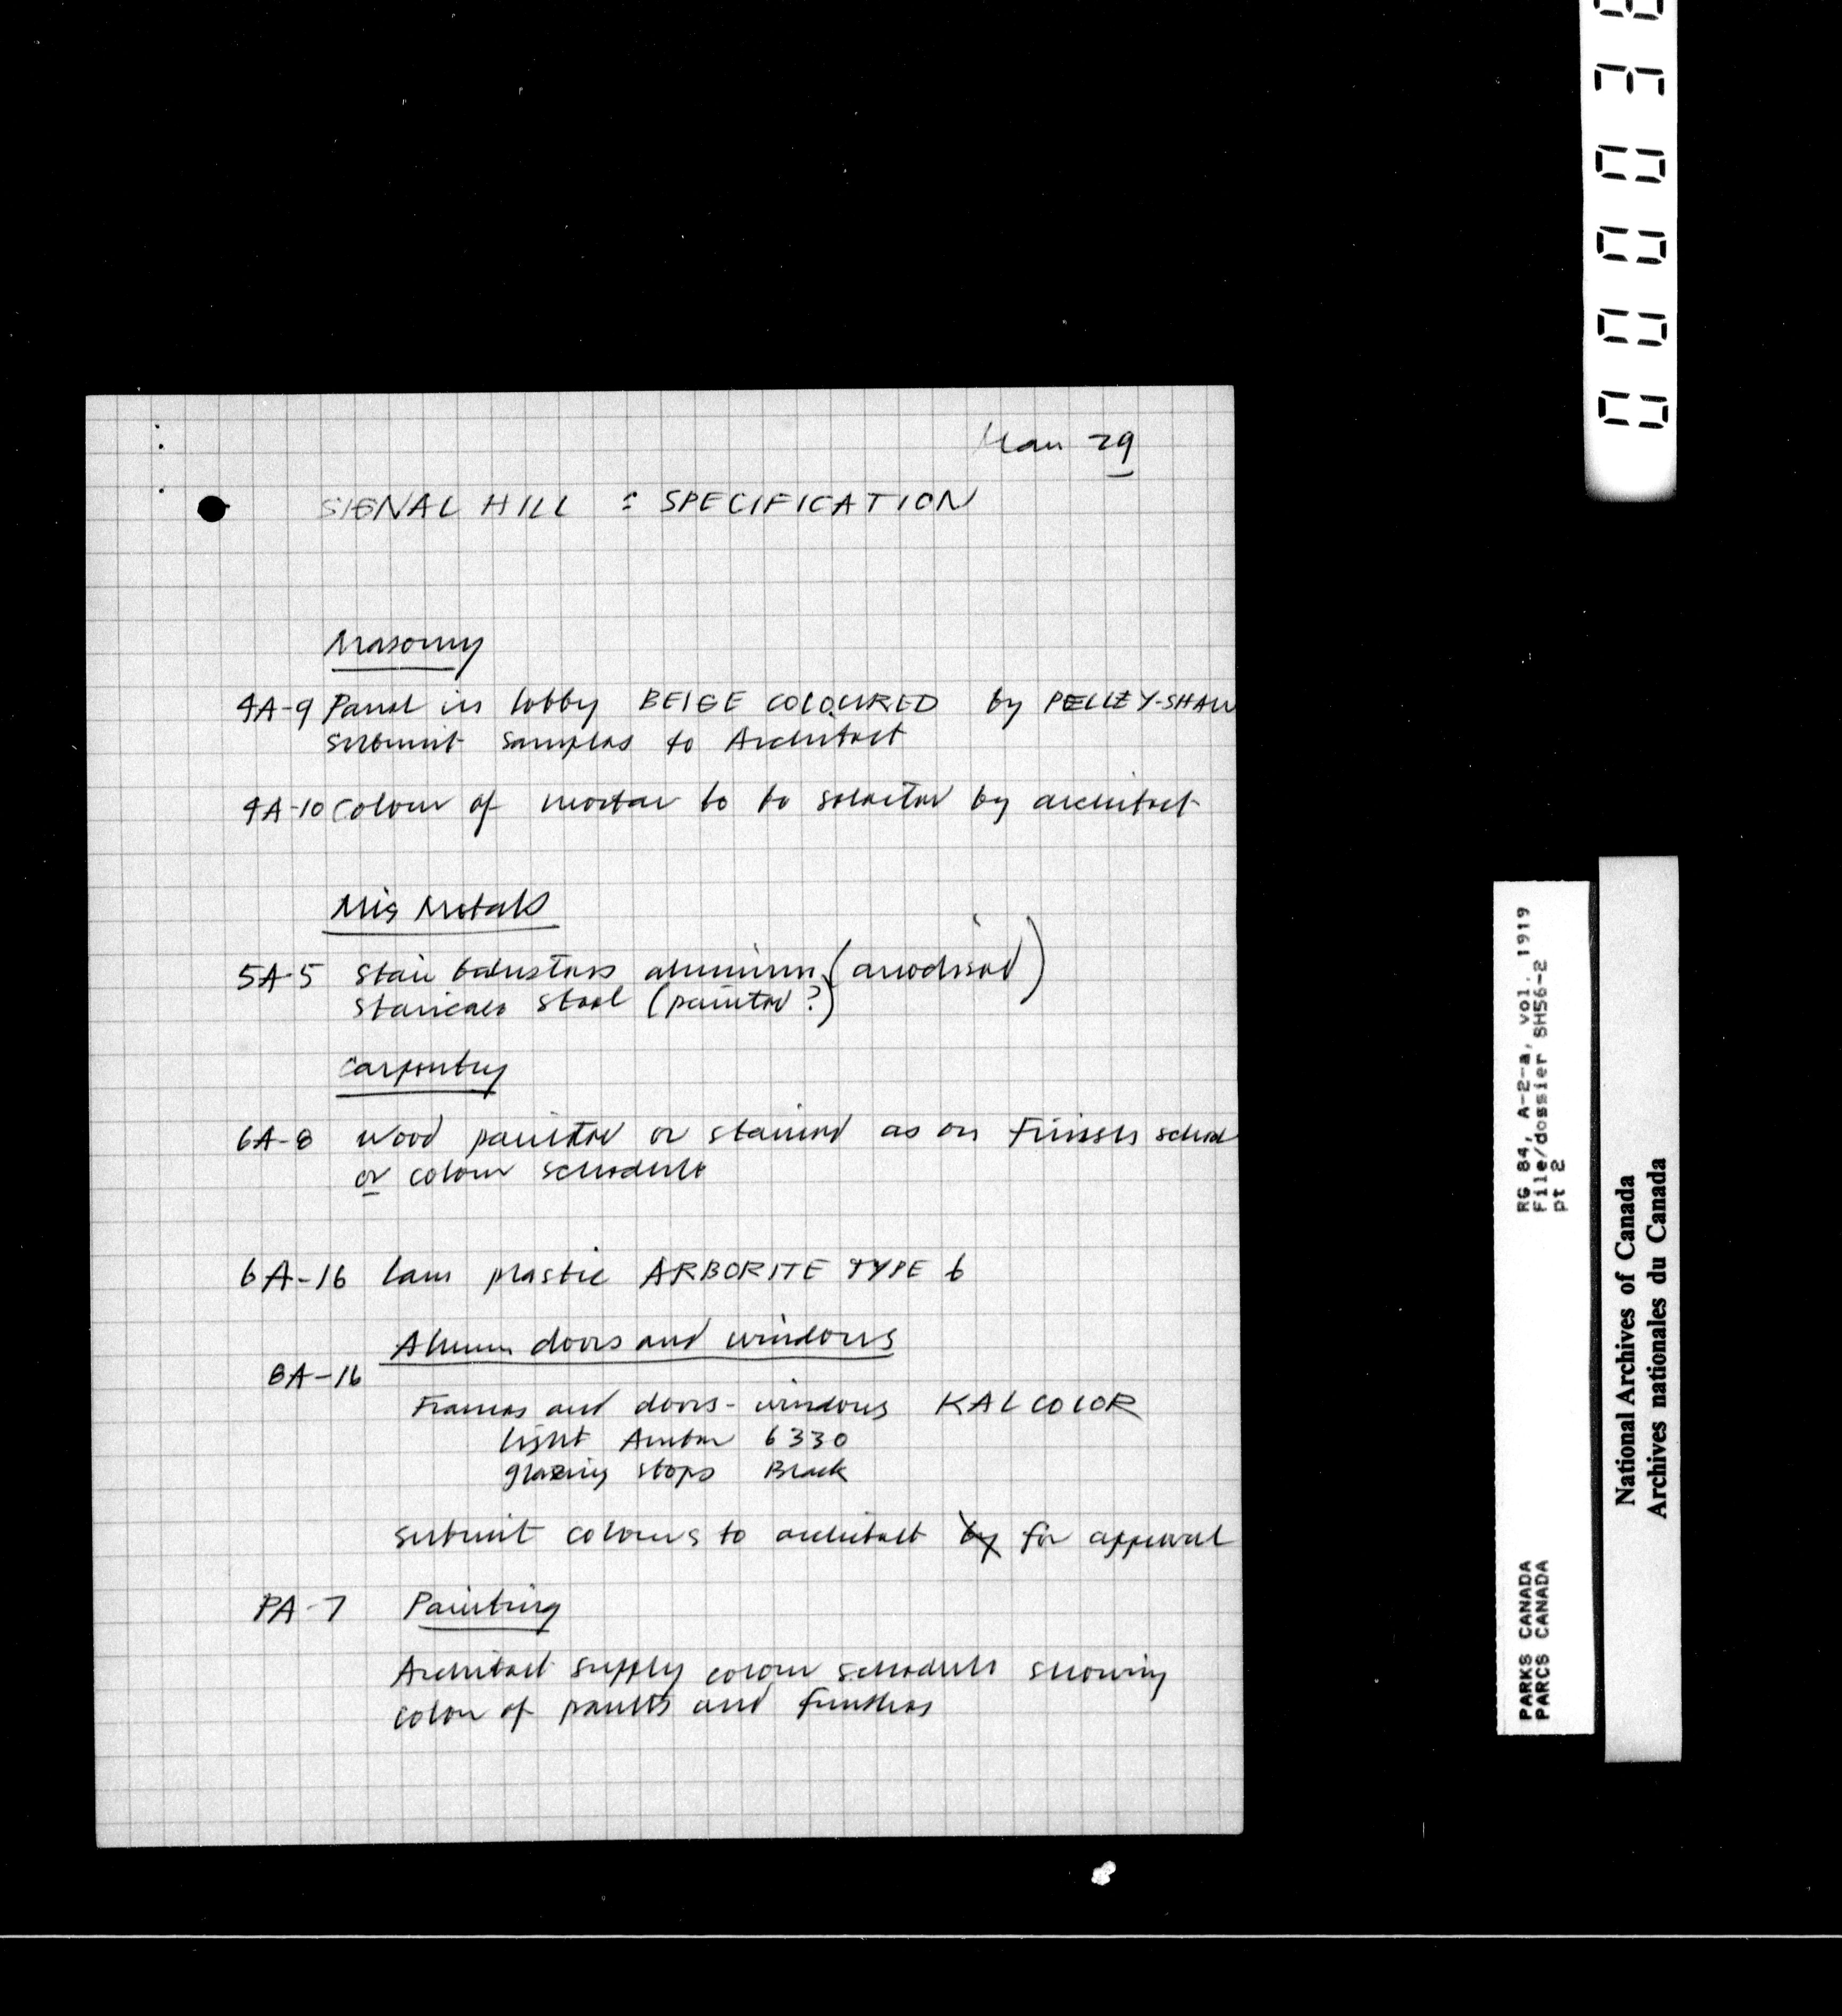 Mar 29
SIGNAL HILL : SPECIFICATION
Masonry
4A-9 Panel in lobby BEIGE COLOURED by PELLEY-SHAW
submit samples to Architect
4A-10 Colour of mortar to be selected by architect
Mis Metals
5A-5 Stair balusters aluminium (anodised)
Staircase steel (painted?)
Carpentry
6A-8 Wood painted or stained as on Finish sched
or colour schedule
6A-16 Lam plastic ARBORITE TYPE 6
Alumn doors and windows
8A-16
Frames and doors - windows KALCOLOR
light Amber 6330
glazing stops Black
Submit colours to architect by for approval
PA-7 Painting
Architect supply colour schedule showing
colour of paints and finishes
RG 84, A-2-a, vol. 1919
File/dossier SH56-2
pt 2
PARKS CANADA
PARCS CANADA
National Archives of Canada
Archives nationales du Canada